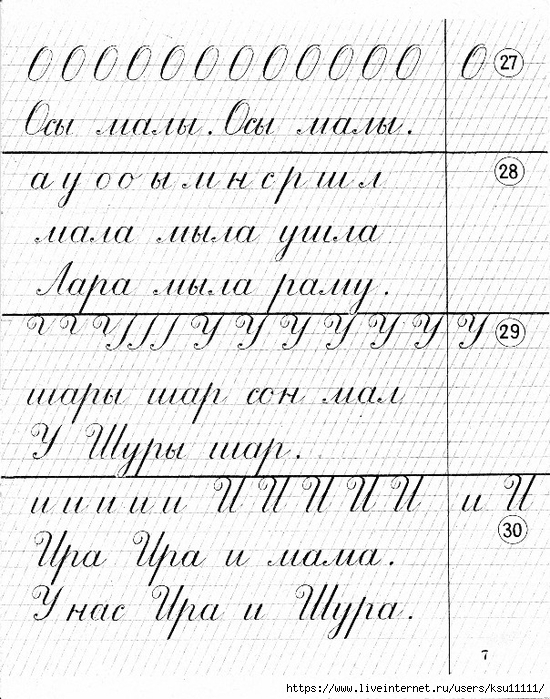 О О О О О О О О О О О О О 27
Осы малы. Осы малы.
28
а у о о ы м н с р ш л
мала мыла ушла
Лара мыла раму.
У У У У У У У 29
шары шар сон мал
У Шуры шар.
и и и и и И И И И И и И
30
Ира Ира и мама.
У нас Ира и Шура.
7
https://www.liveinternet.ru/users/ksu11111/